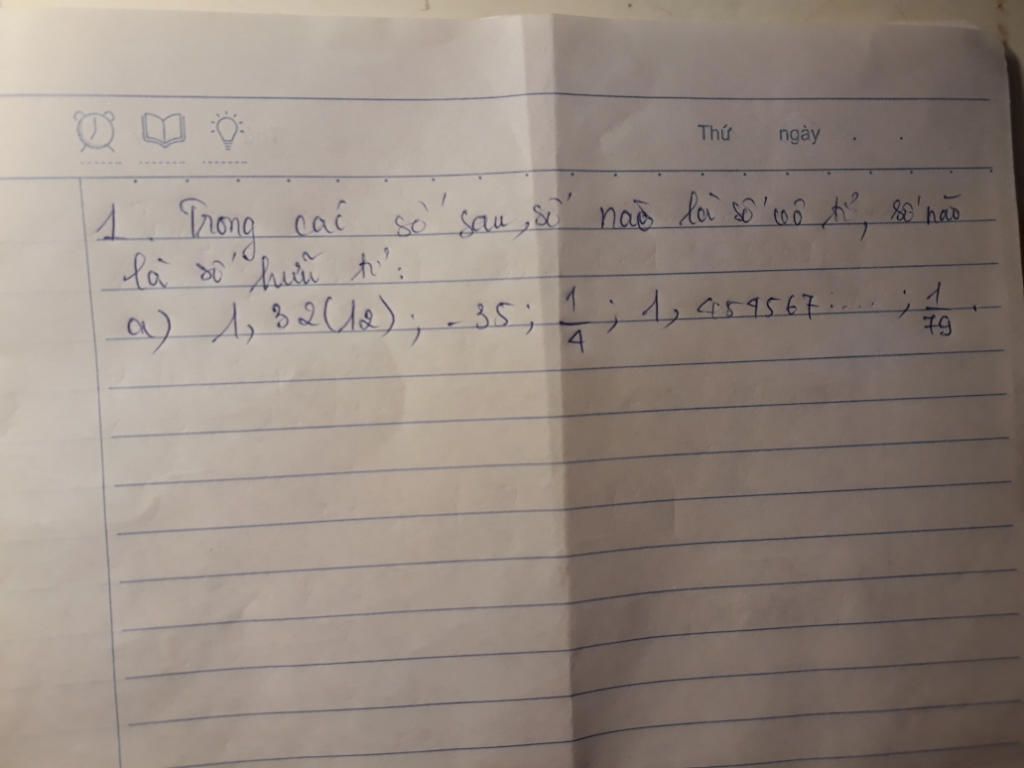 Thứ ngày . .
1. Trong các số sau, số nào là số vô tỉ, số nào
là số hữu tỉ:
a) 1,32(12); -35; 1/4; 1,454567....; 1/79.